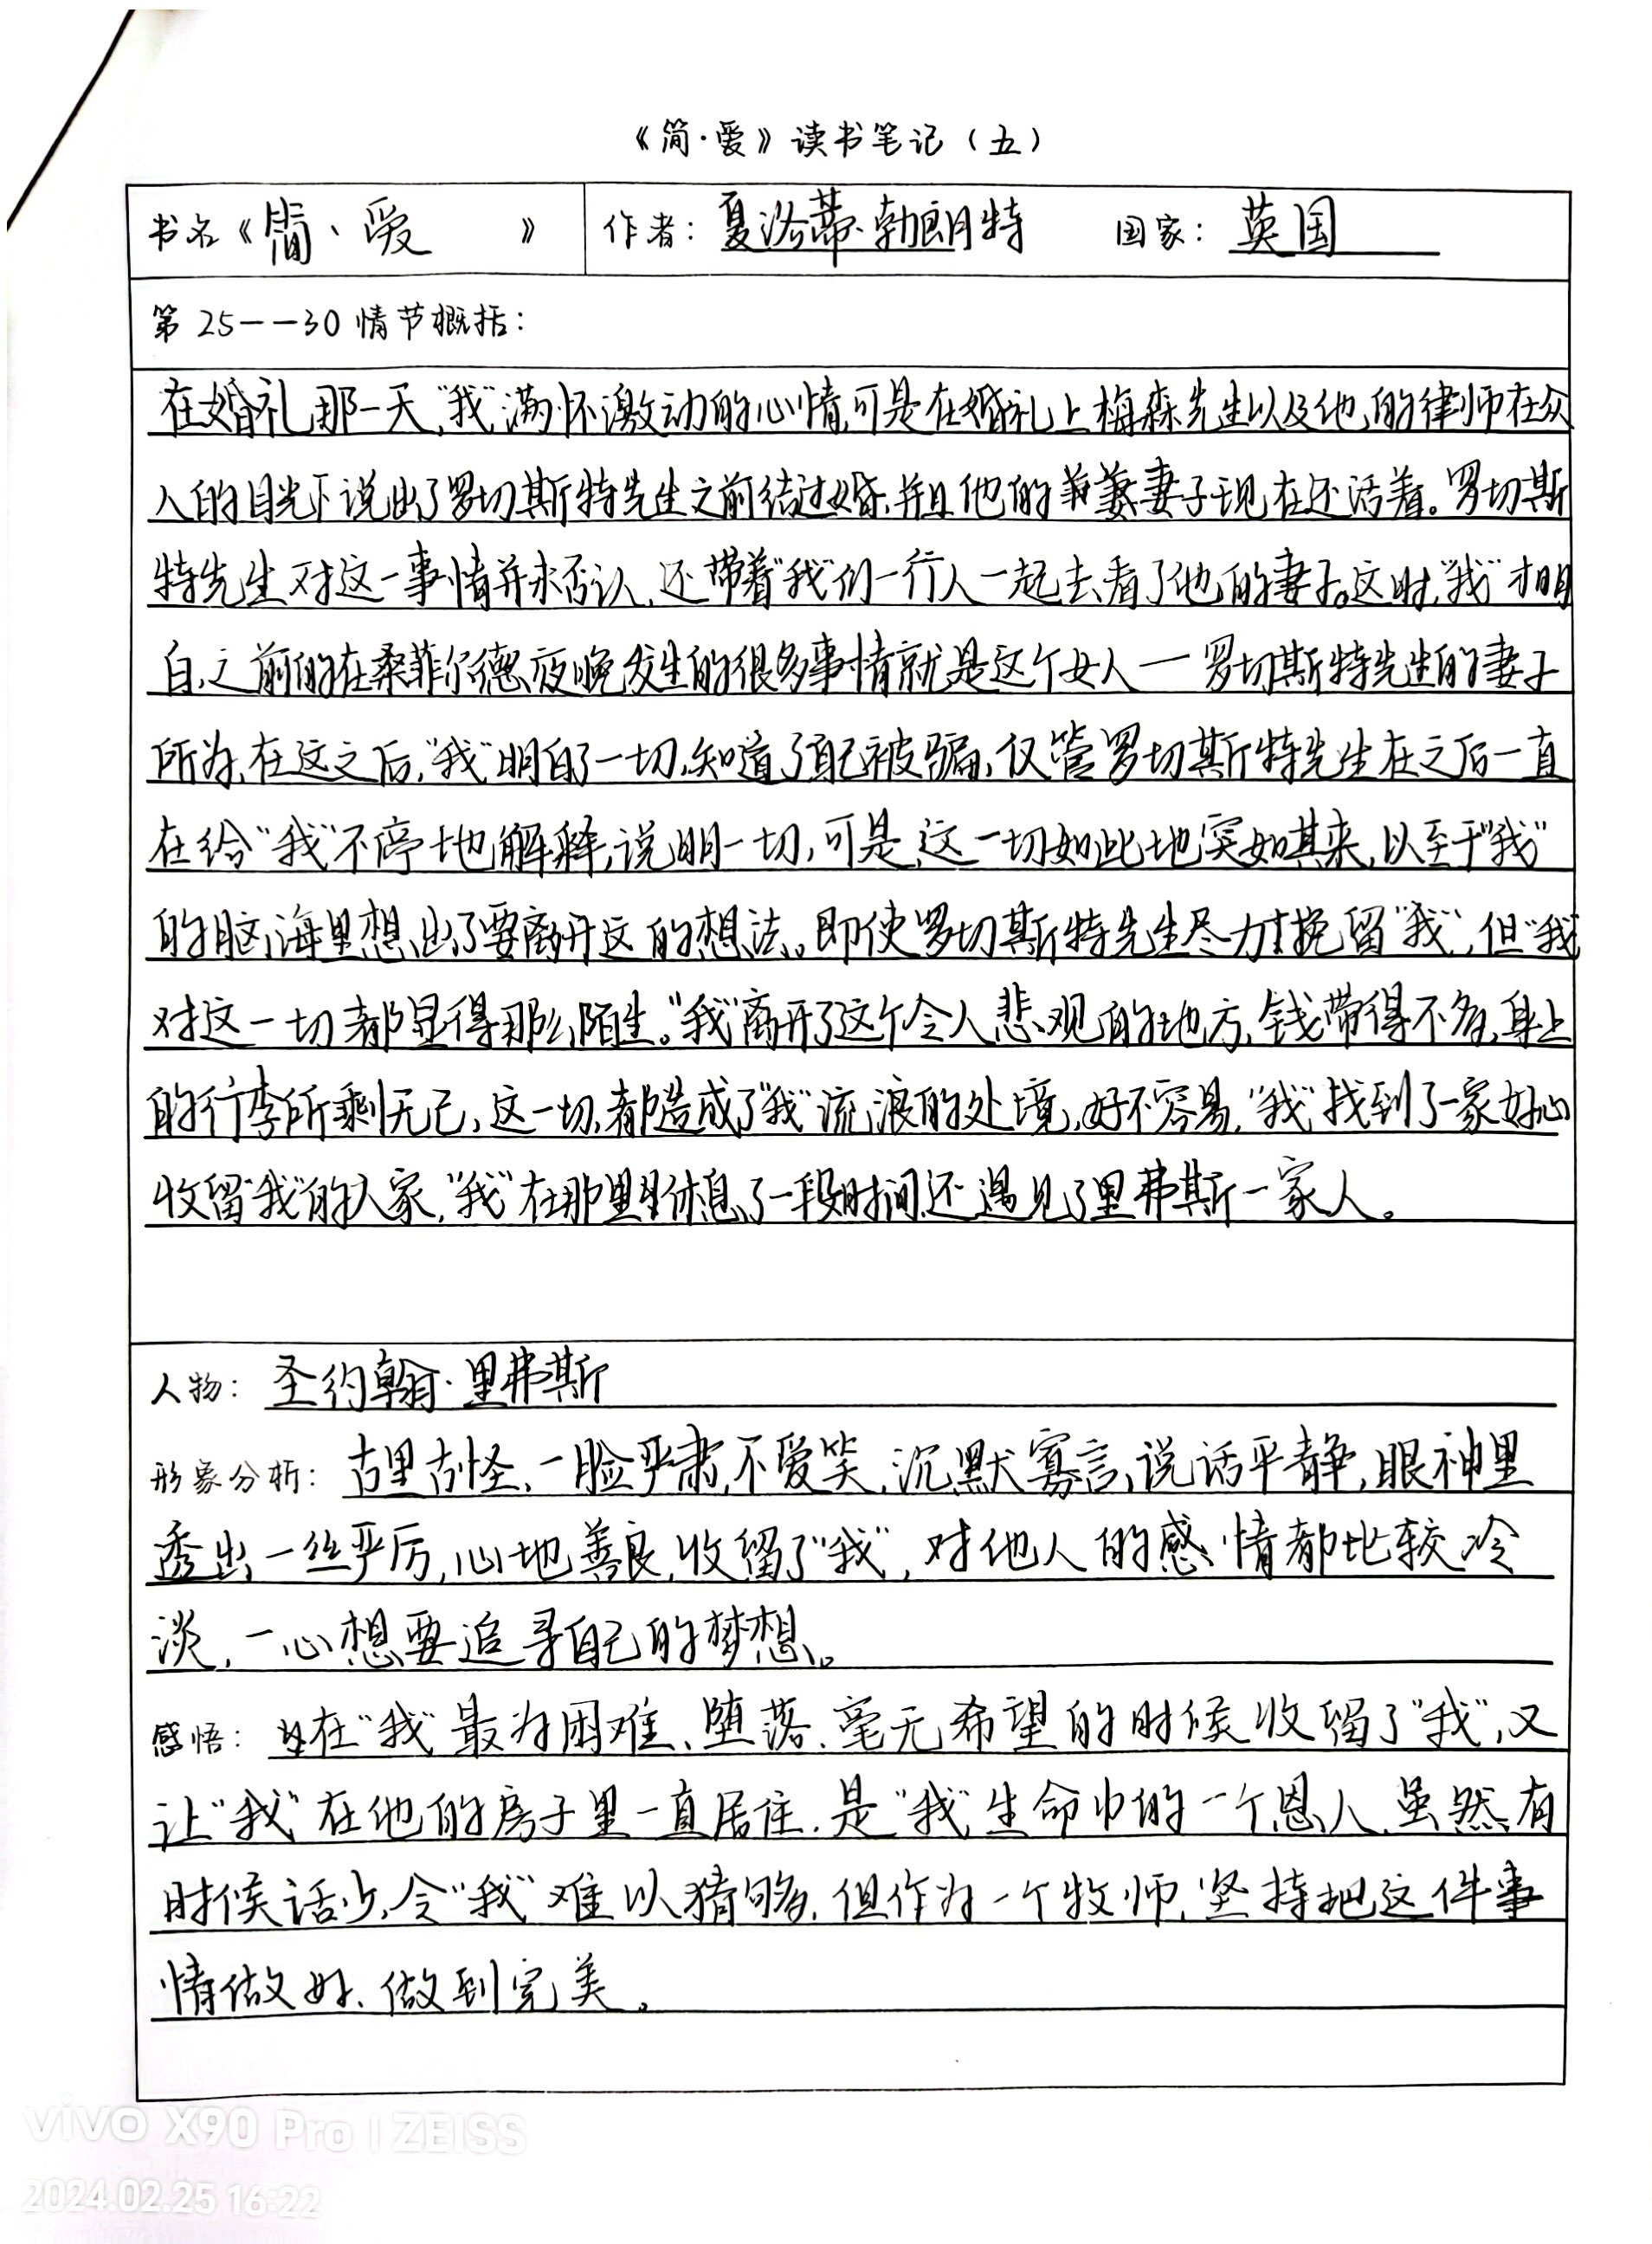 《简·爱》读书笔记（五）
书名《简、爱》 作者：夏洛蒂·勃朗特 国家：英国
第25——30情节概括：
在婚礼那一天,“我”满怀激动的心情,可是在婚礼上梅森先生以及他的律师在众
人的目光下说出了罗切斯特先生之前结过婚,并且他的妻子现在还活着。罗切斯
特先生对这一事情并未否认,还带着“我”们一行人一起去看了他的妻子。这时,“我”才明
白,之前的在桑菲尔德夜晚发生的很多事情就是这个女人一罗切斯特先生的妻子
所为,在这之后,“我”明白了一切,知道了自己被骗,仅管罗切斯特先生在之后一直
在给“我”不停地解释,说明一切,可是,这一切如此地突如其来,以至于“我”
的脑海里想出了要离开这的想法。即使罗切斯特先生尽力挽留“我”,但“我
对这一切都显得那么陌生。“我”离开了这个令人悲观的地方,钱带得不多,身上
的行李所剩无己,这一切,都造成了“我”流浪的处境,好不容易,“我”找到了一家好心
收留“我”的人家,“我”在那里休息了一段时间,还遇见了里弗斯一家人。
人物：圣约翰·里弗斯
形象分析：古里古怪、一脸严肃,不爱笑,沉默寡言,说话平静,眼神里
透出一丝严厉,心地善良,收留了“我”,对他人的感情都比较冷
淡,一心想要追寻自己的梦想。
感悟：在“我”最为困难、堕落、毫无希望的时候收留了“我”,又
让“我”在他的房子里一直居住,是“我”生命中的一个恩人,虽然有
时候话少,令“我”难以猜够,但作为一个牧师,坚持把这件事
情做好、做到完美。
vivo X90 Pro | ZEISS
2024.02.25 16:22